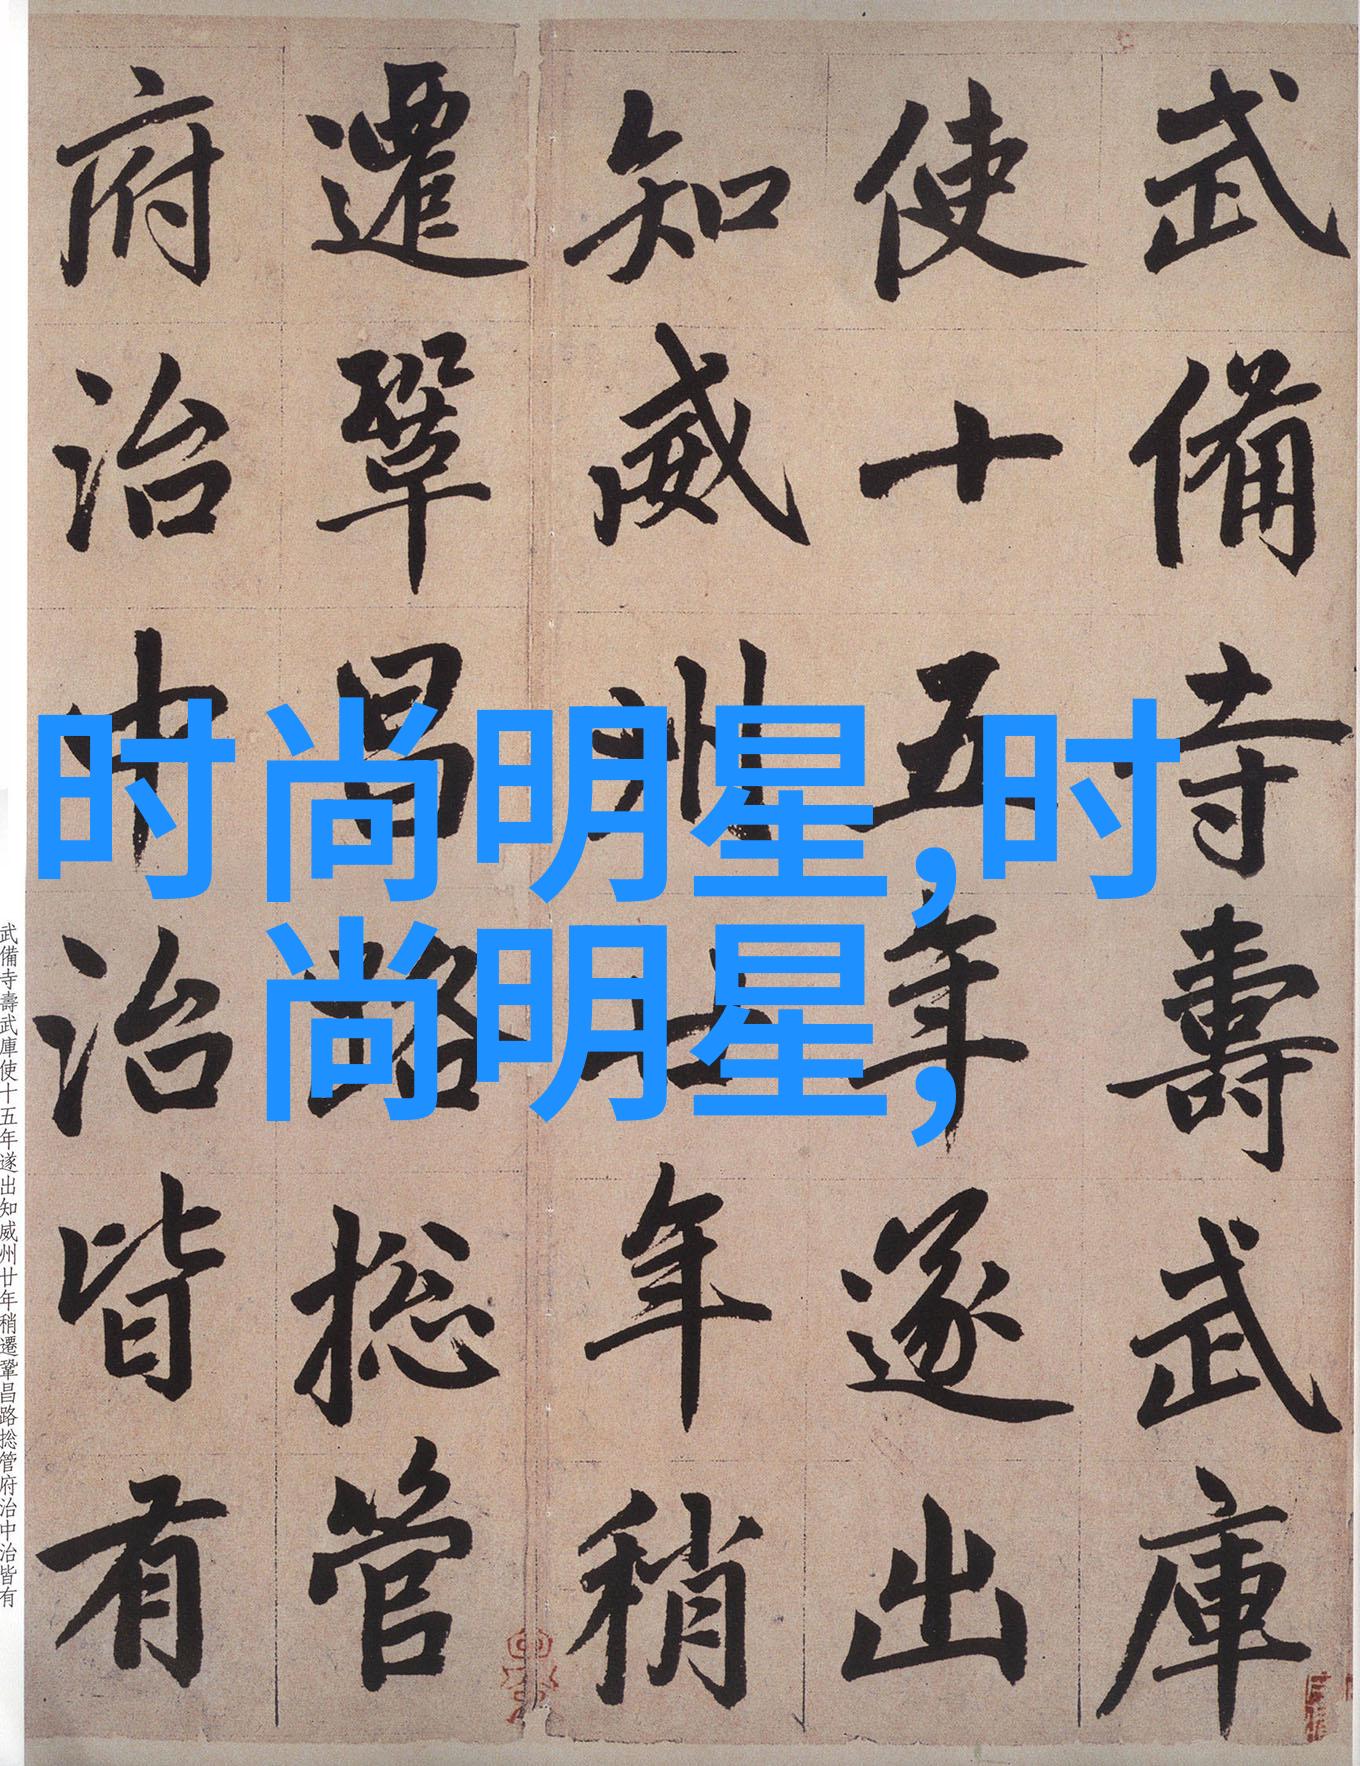 武備寺壽武庫
使十五年遂出
知威州廿年稍
遷鞏昌路捴管
府治中治皆有
时尚明星,时
尚明星,
武備寺壽武庫使十五年遂出知威州廿年稍遷鞏昌路捴管府治中治皆有